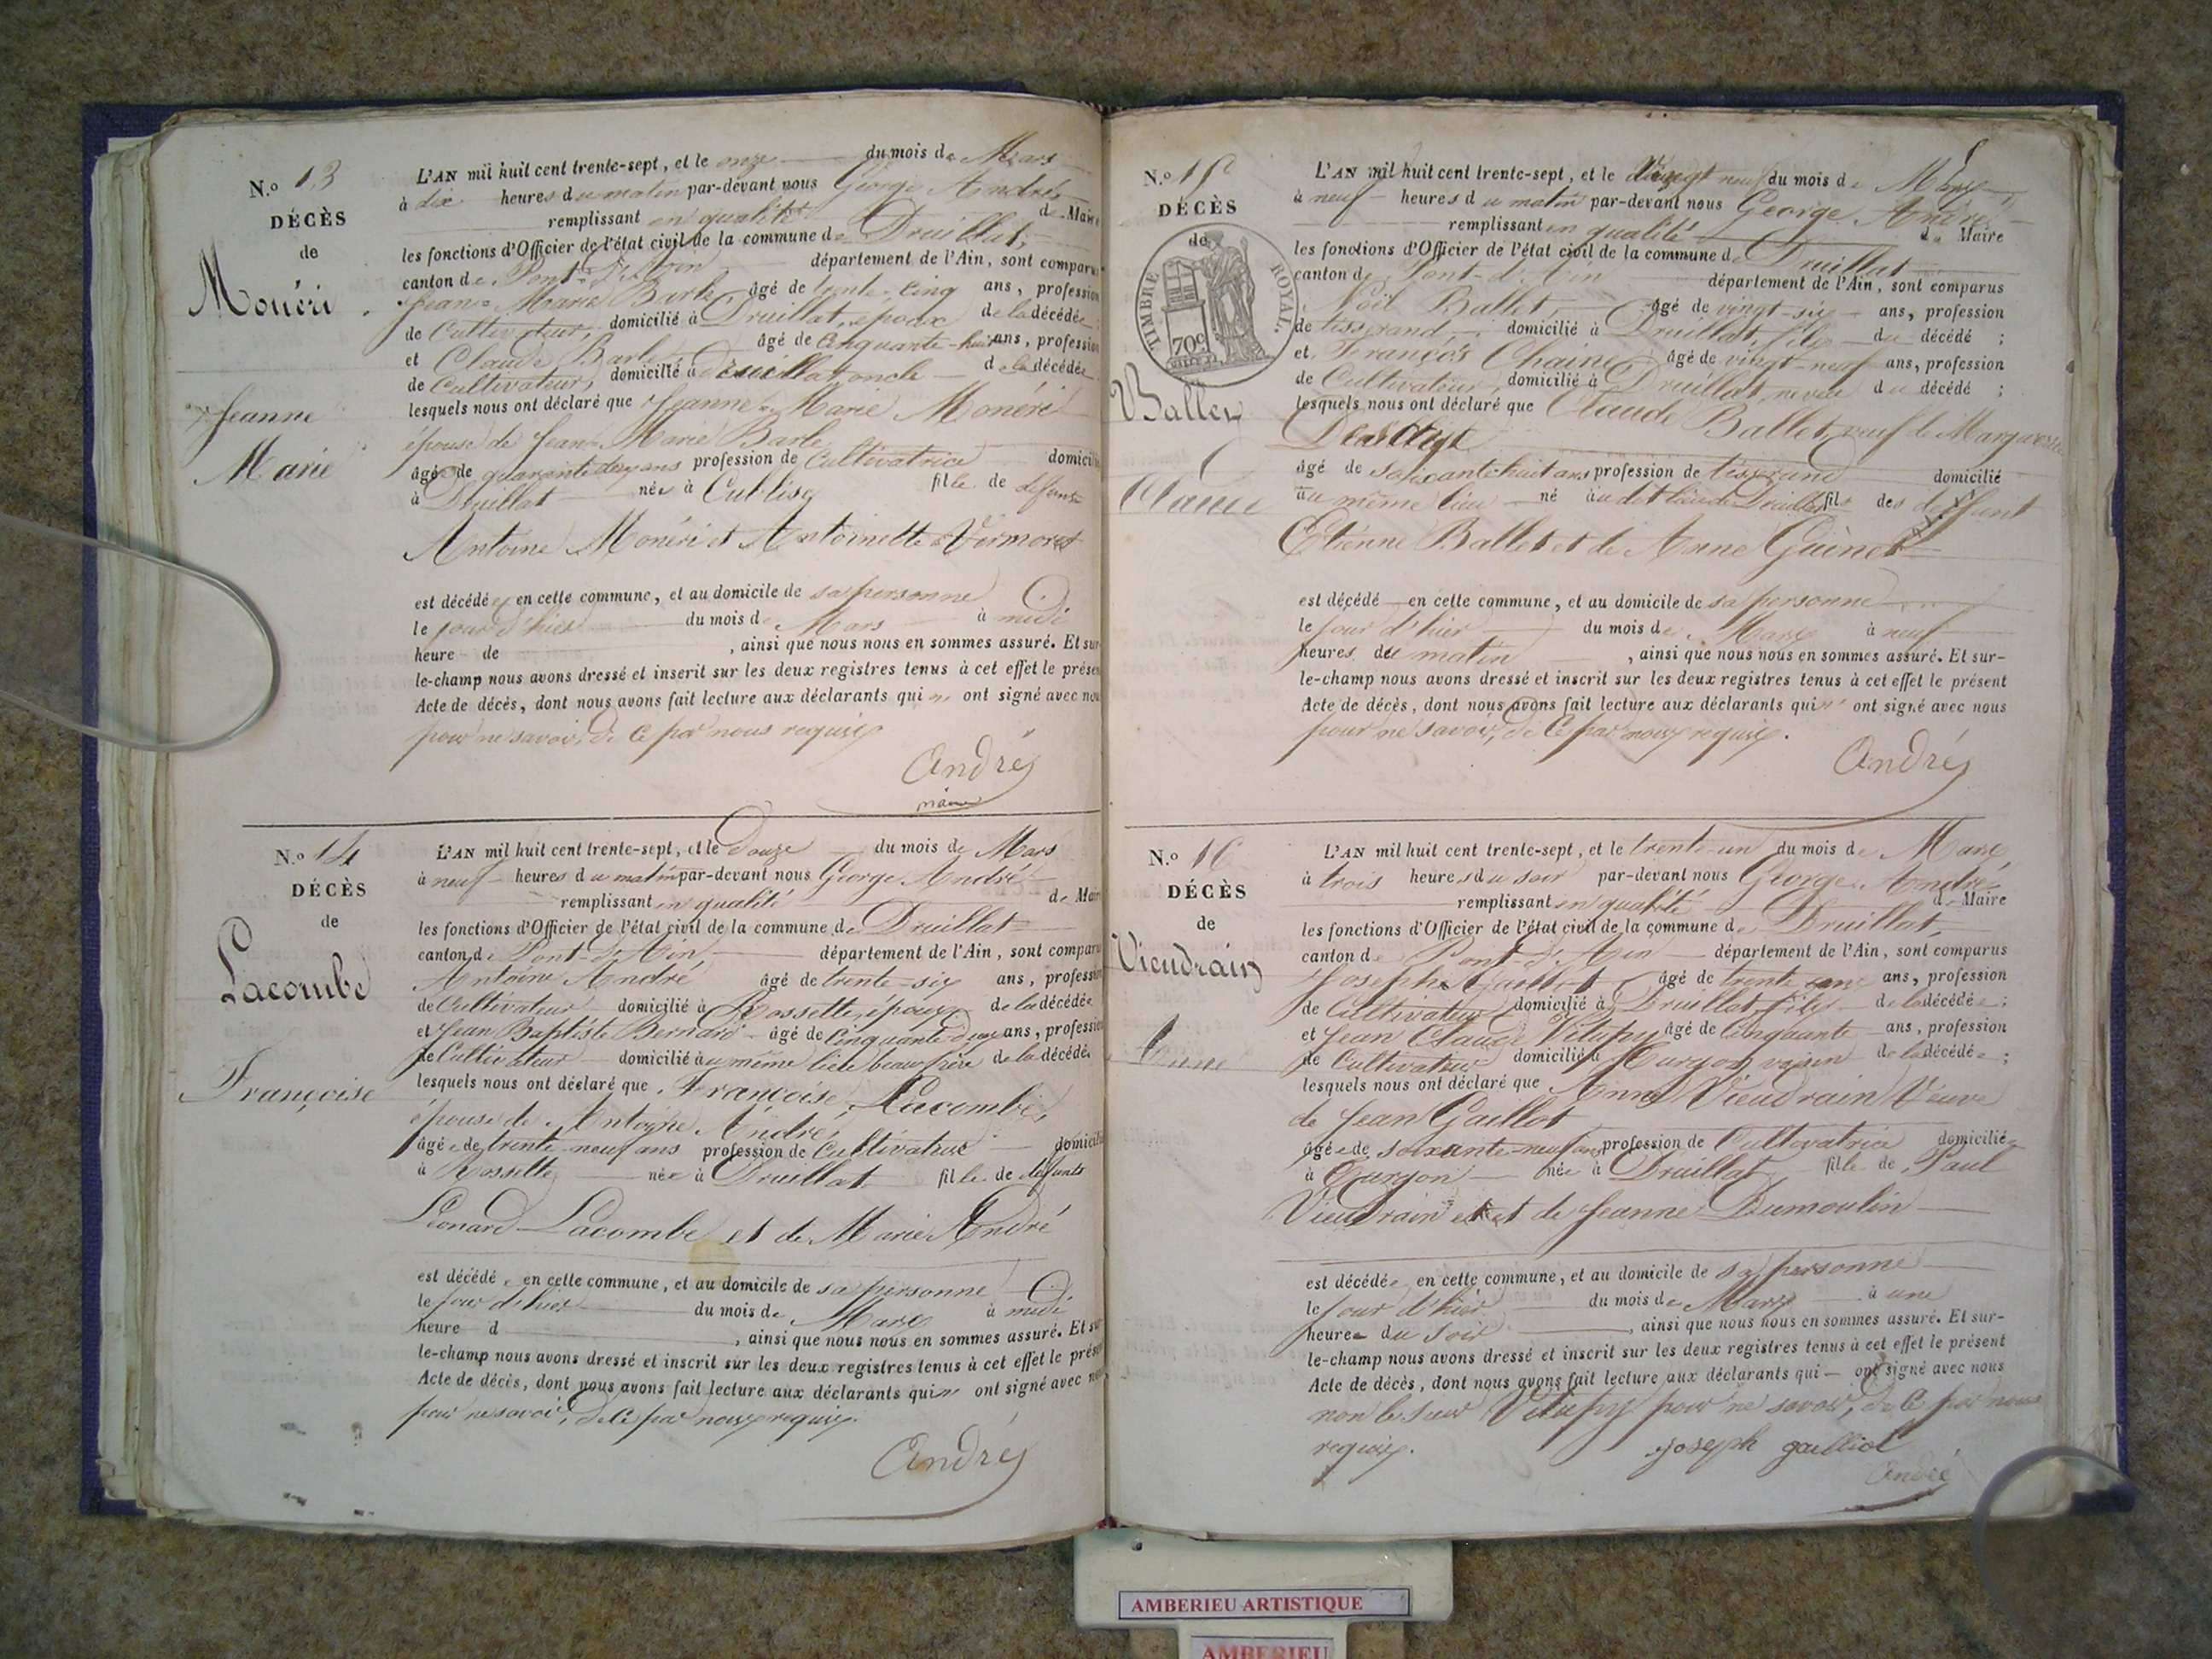 N.º 13
DÉCÈS
de
Monéri
Jeanne
Marie
L'AN mil huit cent trente-sept, et le onze du mois de Mars
à dix heures du matin par-devant nous George André
remplissant en qualité de Maire
les fonctions d'Officier de l'état civil de la commune de Druillat,
canton de Pont-d'Ain département de l'Ain, sont comparus
Jean-Marie Barle, âgé de trente-cinq ans, profession
de Cultivateur, domicilié à Druillat, époux de la décédée
et Claude Barle âgé de Cinquante-huit ans, profession
de Cultivateur, domicilié à Druillat oncle de la décédée
lesquels nous ont déclaré que Jeanne-Marie Monéri
épouse de Jean-Marie Barle
âgée de quarante deux ans profession de Cultivatrice domicilié
à Druillat née à Cublise fille de défunts
Antoine Monéri et Antoinette Vermorel
est décédée en cette commune, et au domicile de sa personne
le jour d'hier du mois de Mars à midi
heure de , ainsi que nous nous en sommes assuré. Et sur
le-champ nous avons dressé et inscrit sur les deux registres tenus à cet effet le présent
Acte de décès, dont nous avons fait lecture aux déclarants qui n' ont signé avec nous
pour ne savoir, de ce par nous requis
André
maire
N.º 14
DÉCÈS
de
Lacombe
Françoise
L'AN mil huit cent trente-sept, et le Douze du mois de Mars
à neuf heures du matin par-devant nous George André
remplissant en qualité de Maire
les fonctions d'Officier de l'état civil de la commune de Druillat
canton de Pont-d'Ain, département de l'Ain, sont comparus
Antoine André âgé de trente-six ans, profession
de Cultivateur domicilié à Rossette, époux de la décédée
et Jean Baptiste Bernard âgé de Cinquante deux ans, profession
de Cultivateur domicilié au même lieu beau frère de la décédée
lesquels nous ont déclaré que Françoise Lacombe,
épouse de Antoine André,
âgée de trente-neuf ans profession de Cultivatrice domicilié
à Rossette née à Druillat fille de défunts
Léonard Lacombe et de Marie André
est décédé en cette commune, et au domicile de sa personne
le jour d'hier du mois de Mars à midi
heure d , ainsi que nous nous en sommes assuré. Et sur
le-champ nous avons dressé et inscrit sur les deux registres tenus à cet effet le présent
Acte de décès, dont nous avons fait lecture aux déclarants qui n' ont signé avec nous
pour ne savoir, de ce par nous requis.
André
N.º 15
DÉCÈS
de
TIMBRE ROYAL.
70c
Ballet
Claude
L'AN mil huit cent trente-sept, et le vingt neuf du mois de Mars,
à neuf heures du matin par-devant nous George André
remplissant en qualité de Maire
les fonctions d'Officier de l'état civil de la commune de Druillat
canton de Pont-d'Ain département de l'Ain, sont comparus
Noël Ballet, âgé de vingt-six ans, profession
de tisserand, domicilié à Druillat, fils du décédé ;
et François Chaine âgé de vingt-neuf ans, profession
de Cultivateur, domicilié à Druillat, neveu du décédé ;
lesquels nous ont déclaré que Claude Ballet, veuf de Marguerite
âgé de soixante huit ans profession de tisserand domicilié
au même lieu né au dit lieu de Druillat fils des défunt
Etienne Ballet et de Anne Guinet
est décédé en cette commune, et au domicile de sa personne
le jour d'hier du mois de Mars à neuf
heures du matin , ainsi que nous nous en sommes assuré. Et sur-
le-champ nous avons dressé et inscrit sur les deux registres tenus à cet effet le présent
Acte de décès, dont nous avons fait lecture aux déclarants qui n' ont signé avec nous
pour ne savoir, de ce par nous requis.
André
N.º 16
DÉCÈS
de
Vieudrain
Anne
L'AN mil huit cent trente-sept, et le trente-un du mois de Mars,
à trois heures du soir par-devant nous George André
remplissant en qualité de Maire
les fonctions d'Officier de l'état civil de la commune de Druillat,
canton de Pont-d'Ain département de l'Ain, sont comparus
Joseph Gaillot âgé de trente ans, profession
de Cultivateur domicilié à Druillat, fils de la décédée ;
et Jean Claude Vitupy âgé de Cinquante ans, profession
de Cultivateur domicilié à Turgon voisin de la décédée ;
lesquels nous ont déclaré que Anne Vieudrain Veuve
de Jean Gaillot
âgée de soixante-neuf ans profession de Cultivatrice domiciliée
à Turgon née à Druillat fille de Paul
Vieudrain et de Jeanne Dumoulin
est décédée en cette commune, et au domicile de sa personne
le jour d'hier du mois de Mars à une
heure du soir , ainsi que nous nous en sommes assuré. Et sur-
le-champ nous avons dressé et inscrit sur les deux registres tenus à cet effet le présent
Acte de décès, dont nous avons fait lecture aux déclarants qui ont signé avec nous
non le sieur Vitupy pour ne savoir, de ce par nous
requis.
joseph gailliot
André
AMBERIEU ARTISTIQUE
AMBERIEU